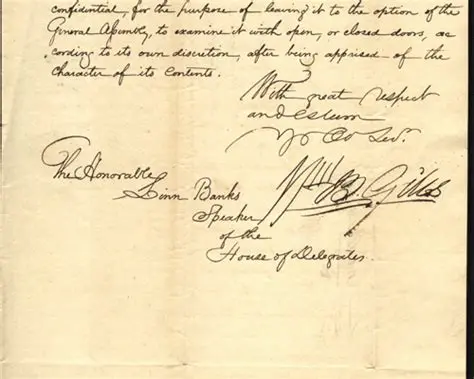 confidential, for the purpose of leaving it to the option of the
General Assembly, to examine it with open, or closed doors, ac
cording to its own discretion, after being apprised of the
character of its contents.
With great respect
and esteem
Yr Ob Sevt.
The Honorable
Linn Banks
Speaker
of the
House of Delegates
Wm B. Giles